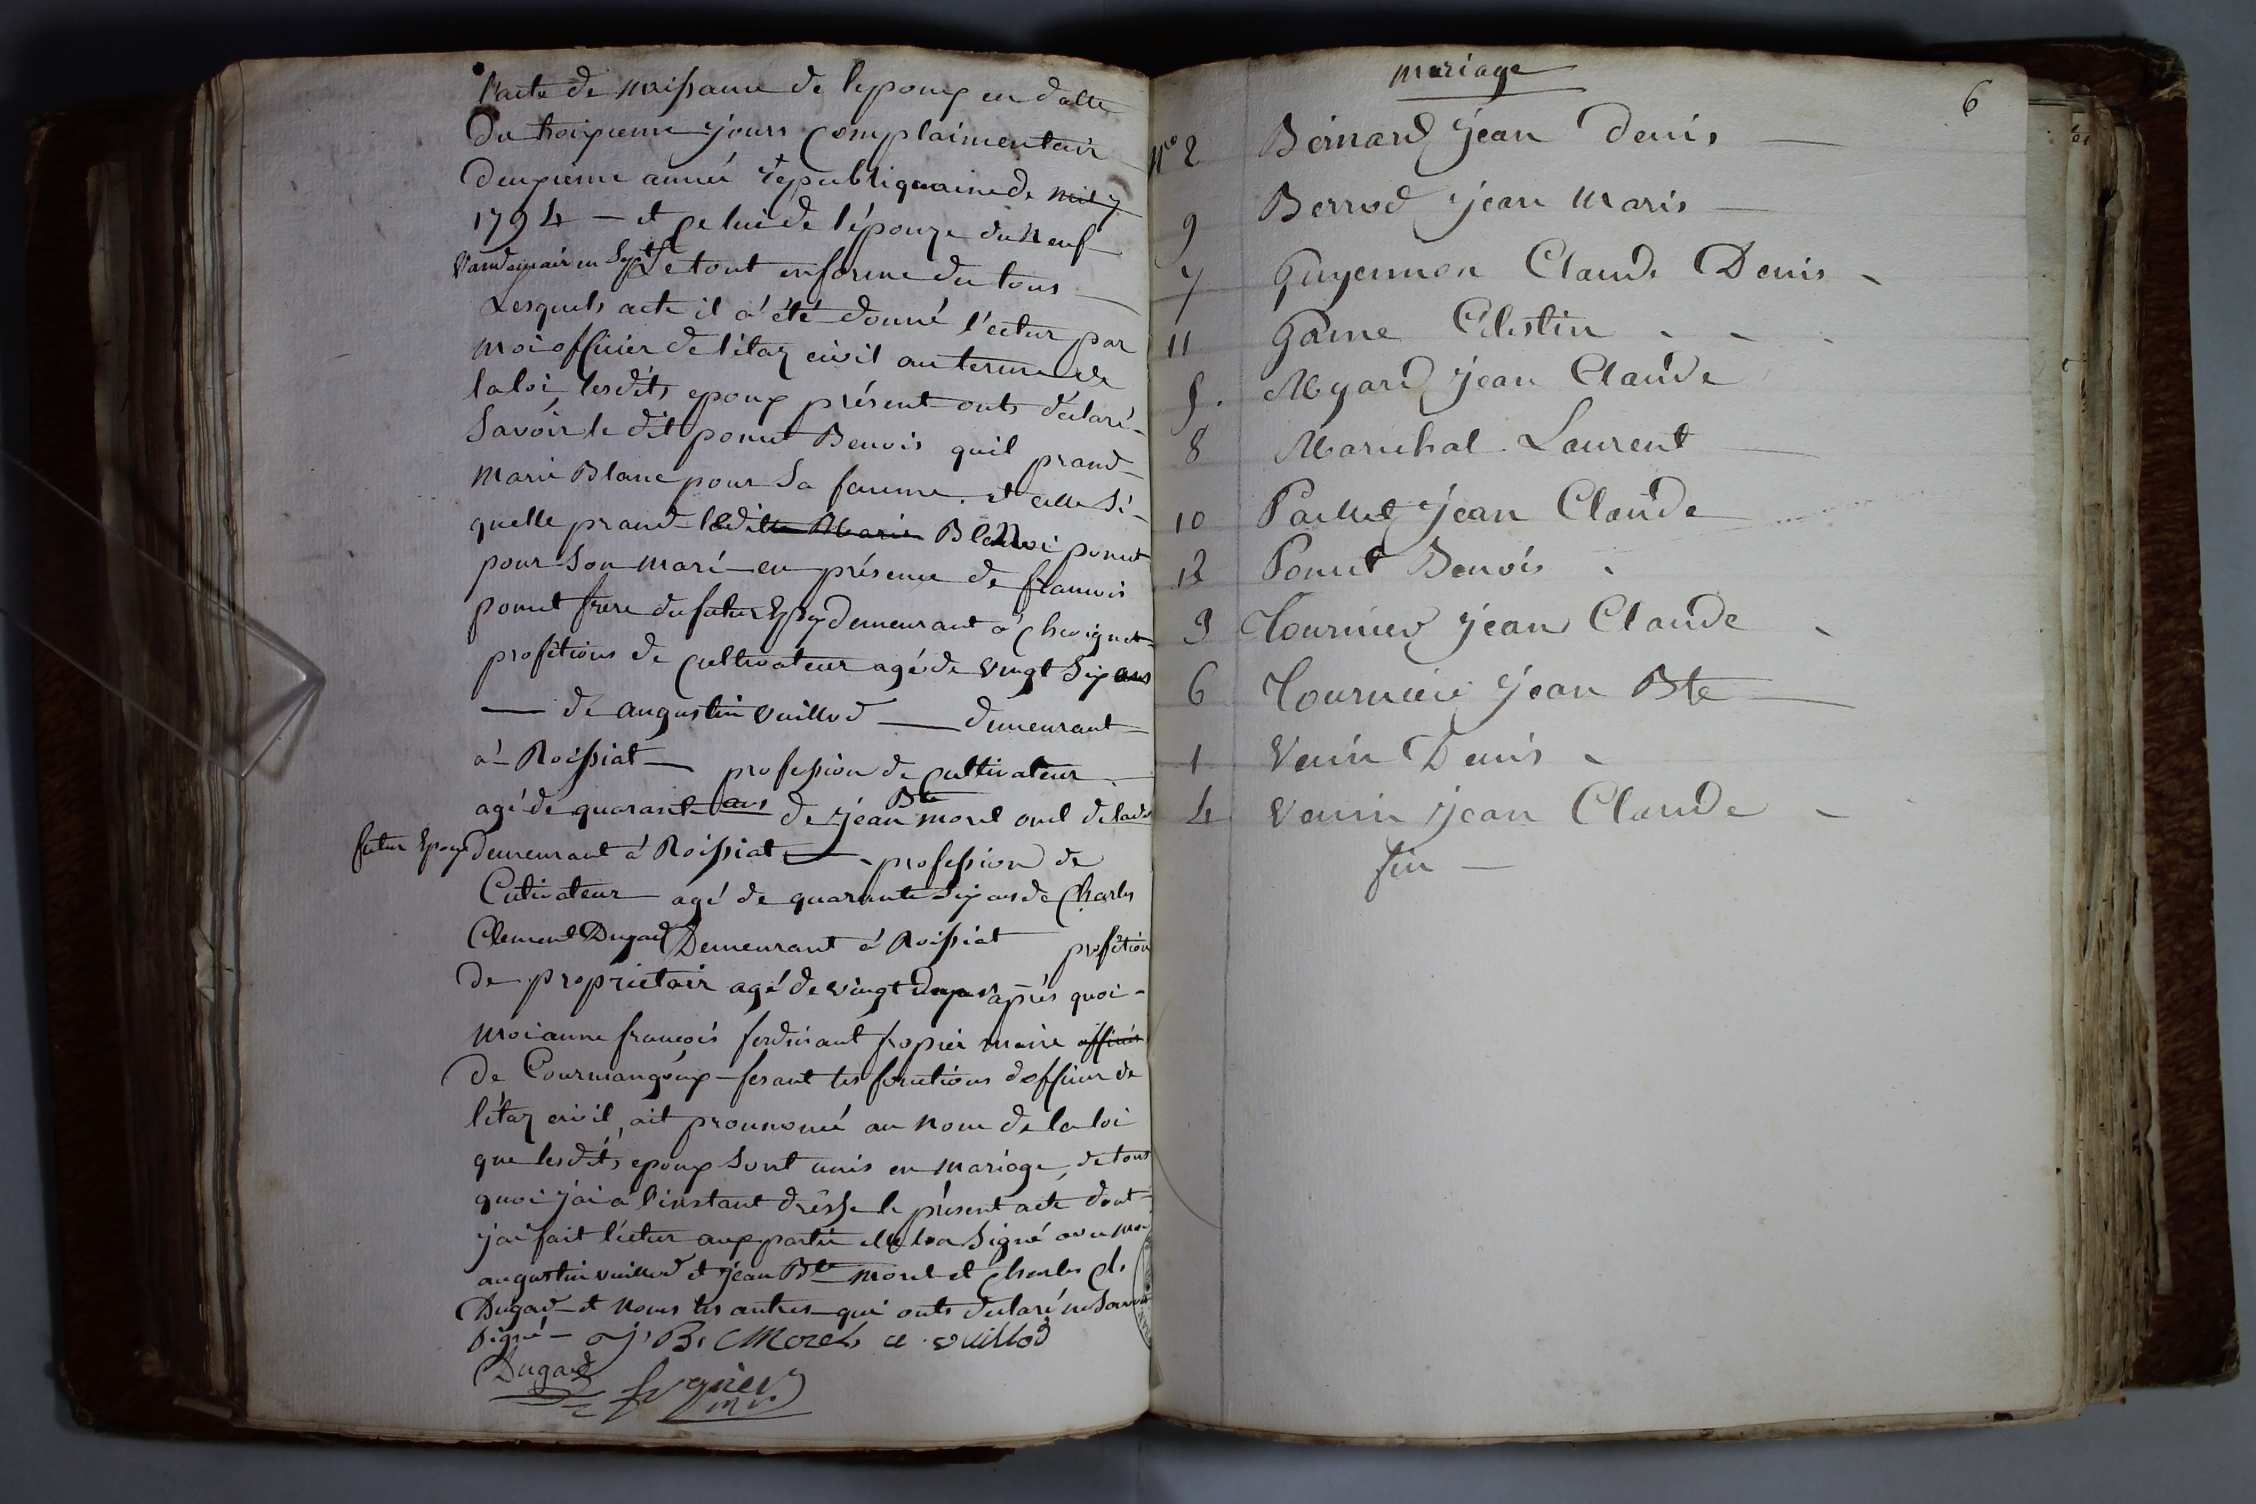 l'acte de naissance de lepoux en datte
du troizieme jours complaimentair
deuxieme année républiquaine de mil 7
1794 — et celui de l'épouze du neuf
Vandemair en Sept Le tout enforme du tous
Lesquels acte il a été donné l'ectur par
moi officier de l'état civil au terme de
la loi, lesdits epoux présent onts déclaré
Savoir le dit ponut Benois quil prand
Marie Blanc pour Sa famme. et celle Si
quelle prand ledite Marie ponut
pour Son mari en présence de francois
ponut frere du futur Epx demeurant à Chevignat
profetions de cultivateur agé de vingt Six ans
— de augustin vuillod — demeurant
à Roissiat — profession de cultivateur
agé de quarante ans de jean Bte morel oncl de la dit
futur Epouze demeurant à Roissiat — profession de
Cutivateur agé de quarante Six ans de Charles
Clement Dugad Demeurant à Roissiat profétion
de proprietair agé de vingt après quoi
moi anne françois ferdinant fropier maire officier
de Courmangoux fesant les fonctions d'officier de
l'état civil, ait prounoncé au nom de la loi
que lesdits epoux Sont unis en mariage, de tous
quoi j'ai a l'instant drésse le présent acte dont
j'ai fait l'éctur aux partie Signé avec moi
augustin vuillod et jean Bte morel et Charles Cls
Dugad et nous les autres qui onts déclaré ne Savoir
Signé — j. B. Morel a vuillod
Dugad
mariage
6
No 2 Bernard jean Denis —
9 Berrod jean Marie —
7 Guyennon Claude Denis
11 Célestin
5. Myard jean Claude
8 Marichal Laurent
10 jean Claude
12 Ponut Benois
3 Tournier jean Claude
6 Tournier jean Bte
1 Vuin Denis
4 Vuin jean Claude
fin —